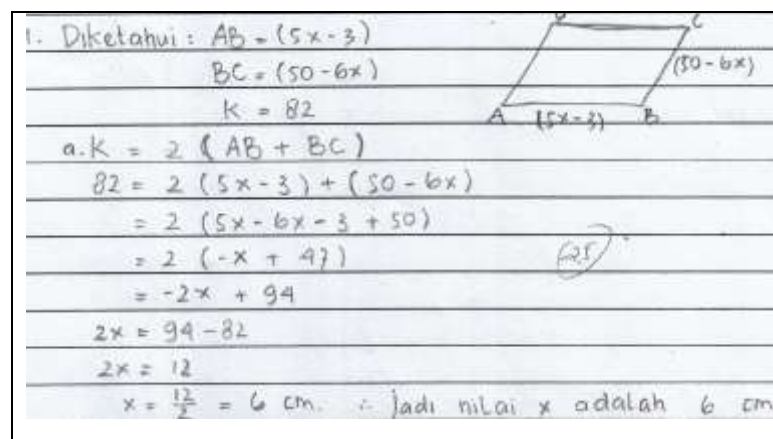 1. Diketahui : AB = (5x-3)
BC = (50-6x)
K = 82
D C
(50-6x)
A (5x-3) B
a. K = 2 ( AB + BC )
82 = 2 (5x-3) + (50-6x)
= 2 (5x-6x-3+50)
= 2 (-x + 47)
= -2x + 94
2x = 94-82
2x = 12
x = 12/2 = 6 cm. ∴ Jadi nilai x adalah 6 cm